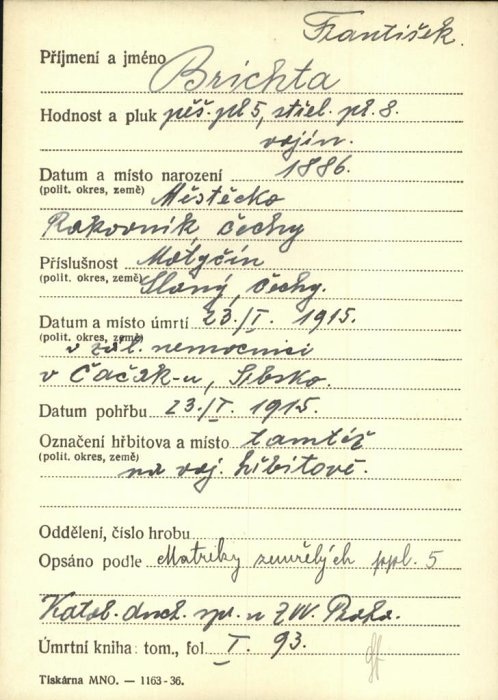 František.
Příjmení a jméno Brichta
Hodnost a pluk pěš. pl 5, střel. pl. 8.
vojín.
Datum a místo narození 1886.
(polit. okres, země) Městečko
Rakovník, čechy
Příslušnost Molyčín
(polit. okres, země) Slaný, čechy.
Datum a místo úmrtí 23./I. 1915.
(polit. okres, země)
v zál. nemocnici
v Čačak-u, Srbsko.
Datum pohřbu 23./I. 1915.
Označení hřbitova a místo tamtéž
(polit. okres, země)
na voj. hřbitově.
Oddělení, číslo hrobu
Opsáno podle Matriky zemřelých ppl. 5
Katol. duch. spr. u ZVV. Praha.
Úmrtní kniha: tom., fol I. 93.
Tiskárna MNO. — 1163-36.